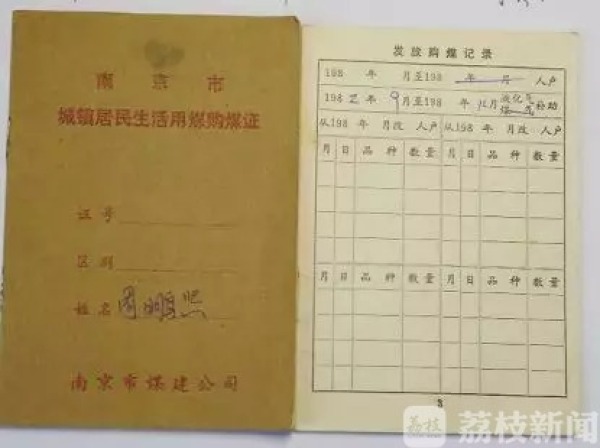 南京市
城镇居民生活用煤购煤证
证号
区别
姓名 周鹏照
南京市煤建公司
发放购煤记录
198 年 月至198 年 月 人户
198 年 9月至198 年 12月 液化气 煤气 补助
从198 年 月改 人户 从198 年 月改 人户
月 日 品种 数量 月 日 品种 数量
月 日 品种 数量 月 日 品种 数量
3
荔枝 荔枝新闻